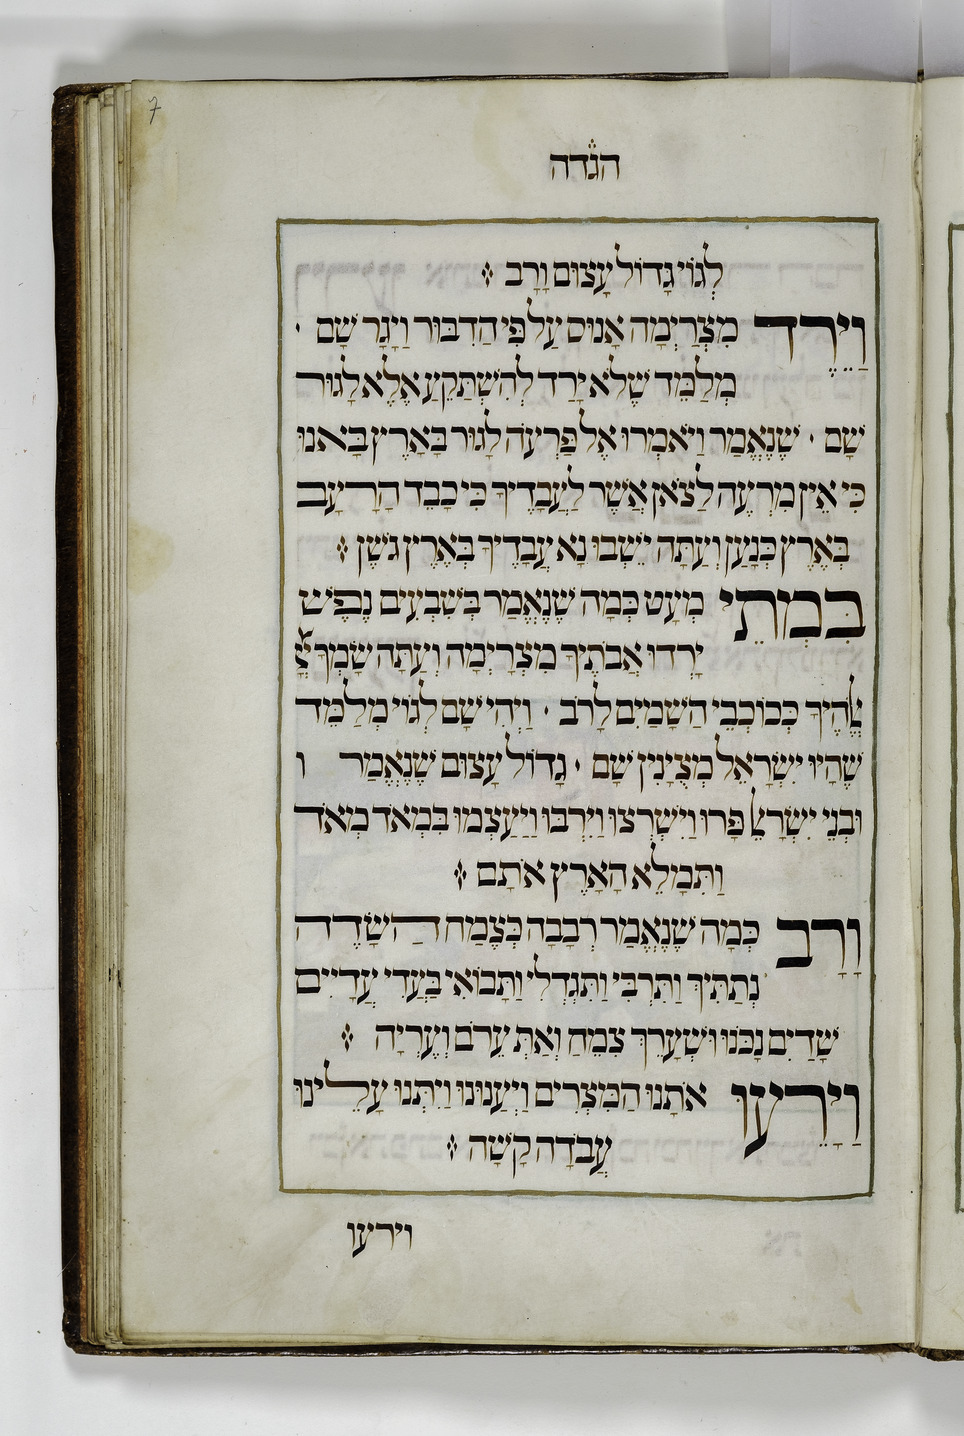 7
הגדה
לְגוֹי גָדוֹל עָצוּם וָרָב
וַיֵרֶד מִצְרַיְמָה אָנוּס עַל פִּי הַדִבּוּר וַיָגָר שָׁם ·
מְלַמֵד שֶׁלֹא יָרַד לְהִשְׁתַּקֵעַ אֶלָא לָגוּר
שָׁם · שֶׁנֶאֱמַר וַיֹאמְרוּ אֶל פַּרְעֹה לָגוּר בָּאָרֶץ בָּאנוּ
כִּי אֵין מִרְעֶה לַצֹאן אֲשֶׁר לַעֲבָדֶיךָ כִּי כָבֵד הָרָעָב
בְּאֶרֶץ כְּנָעַן וְעַתָּה יֵשְׁבוּ נָא עֲבָדֶיךָ בְּאֶרֶץ גֹשֶׁן
בִּמְתֵי מְעָט כְּמָה שֶׁנֶאֱמַר בְּשִׁבְעִים נֶפֶשׁ
יָרְדוּ אֲבֹתֶיךָ מִצְרָיְמָה וְעַתָּה שָׂמְךָ יְיָ
אֱלֹהֶיךָ כְּכוֹכְבֵי הַשָׁמַיִם לָרֹב · וַיְהִי שָׁם לְגוֹי מְלַמֵּד
שֶׁהָיוּ יִשְׂרָאֵל מְצֻיָנִין שָׁם · גָדוֹל עָצוּם שֶׁנֶאֱמַר ו
וּבְנֵי יִשְׂרָאֵל פָּרוּ וַיִשְׁרְצוּ וַיִרְבּוּ וַיַעַצְמוּ בִּמְאֹד מְאֹד
וַתִּמָלֵא הָאָרֶץ אֹתָם
וָרָב כְּמָה שֶׁנֶאֱמַר רְבָבָה כְּצֶמַח הַשָׂדֶה
נְתַתִּיךְ וַתִּרְבִּי וַתִּגְדְלִי וַתָּבוֹאִי בַּעֲדִי עֲדָיִים
שָׁדַיִם נָכֹנוּ וּשְׂעָרֵךְ צִמֵחַ וְאַתְּ עֵרֹם וְעֶרְיָה
וַיָרֵעוּ אֹתָנוּ הַמִצְרִים וַיְעַנוּנוּ וַיִתְּנוּ עָלֵינוּ
עֲבֹדָה קָשָׁה
וירעו